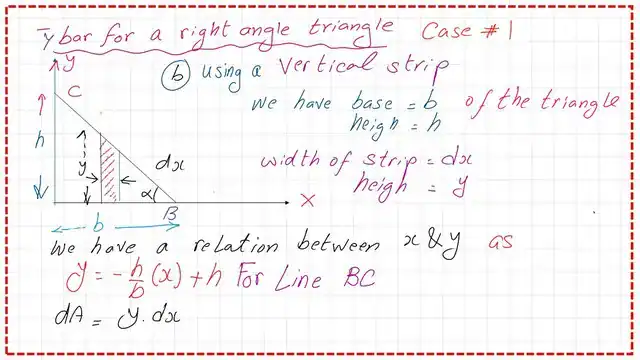 ȳ bar for a right angle triangle Case #1
y
ⓑ using a Vertical strip
C
we have base = b of the triangle
heigh = h
h
y
dx
width of strip = dx
heigh = y
α
B
x
b
we have a relation between x & y as
y = -h/b (x) + h For Line BC
dA = y.dx